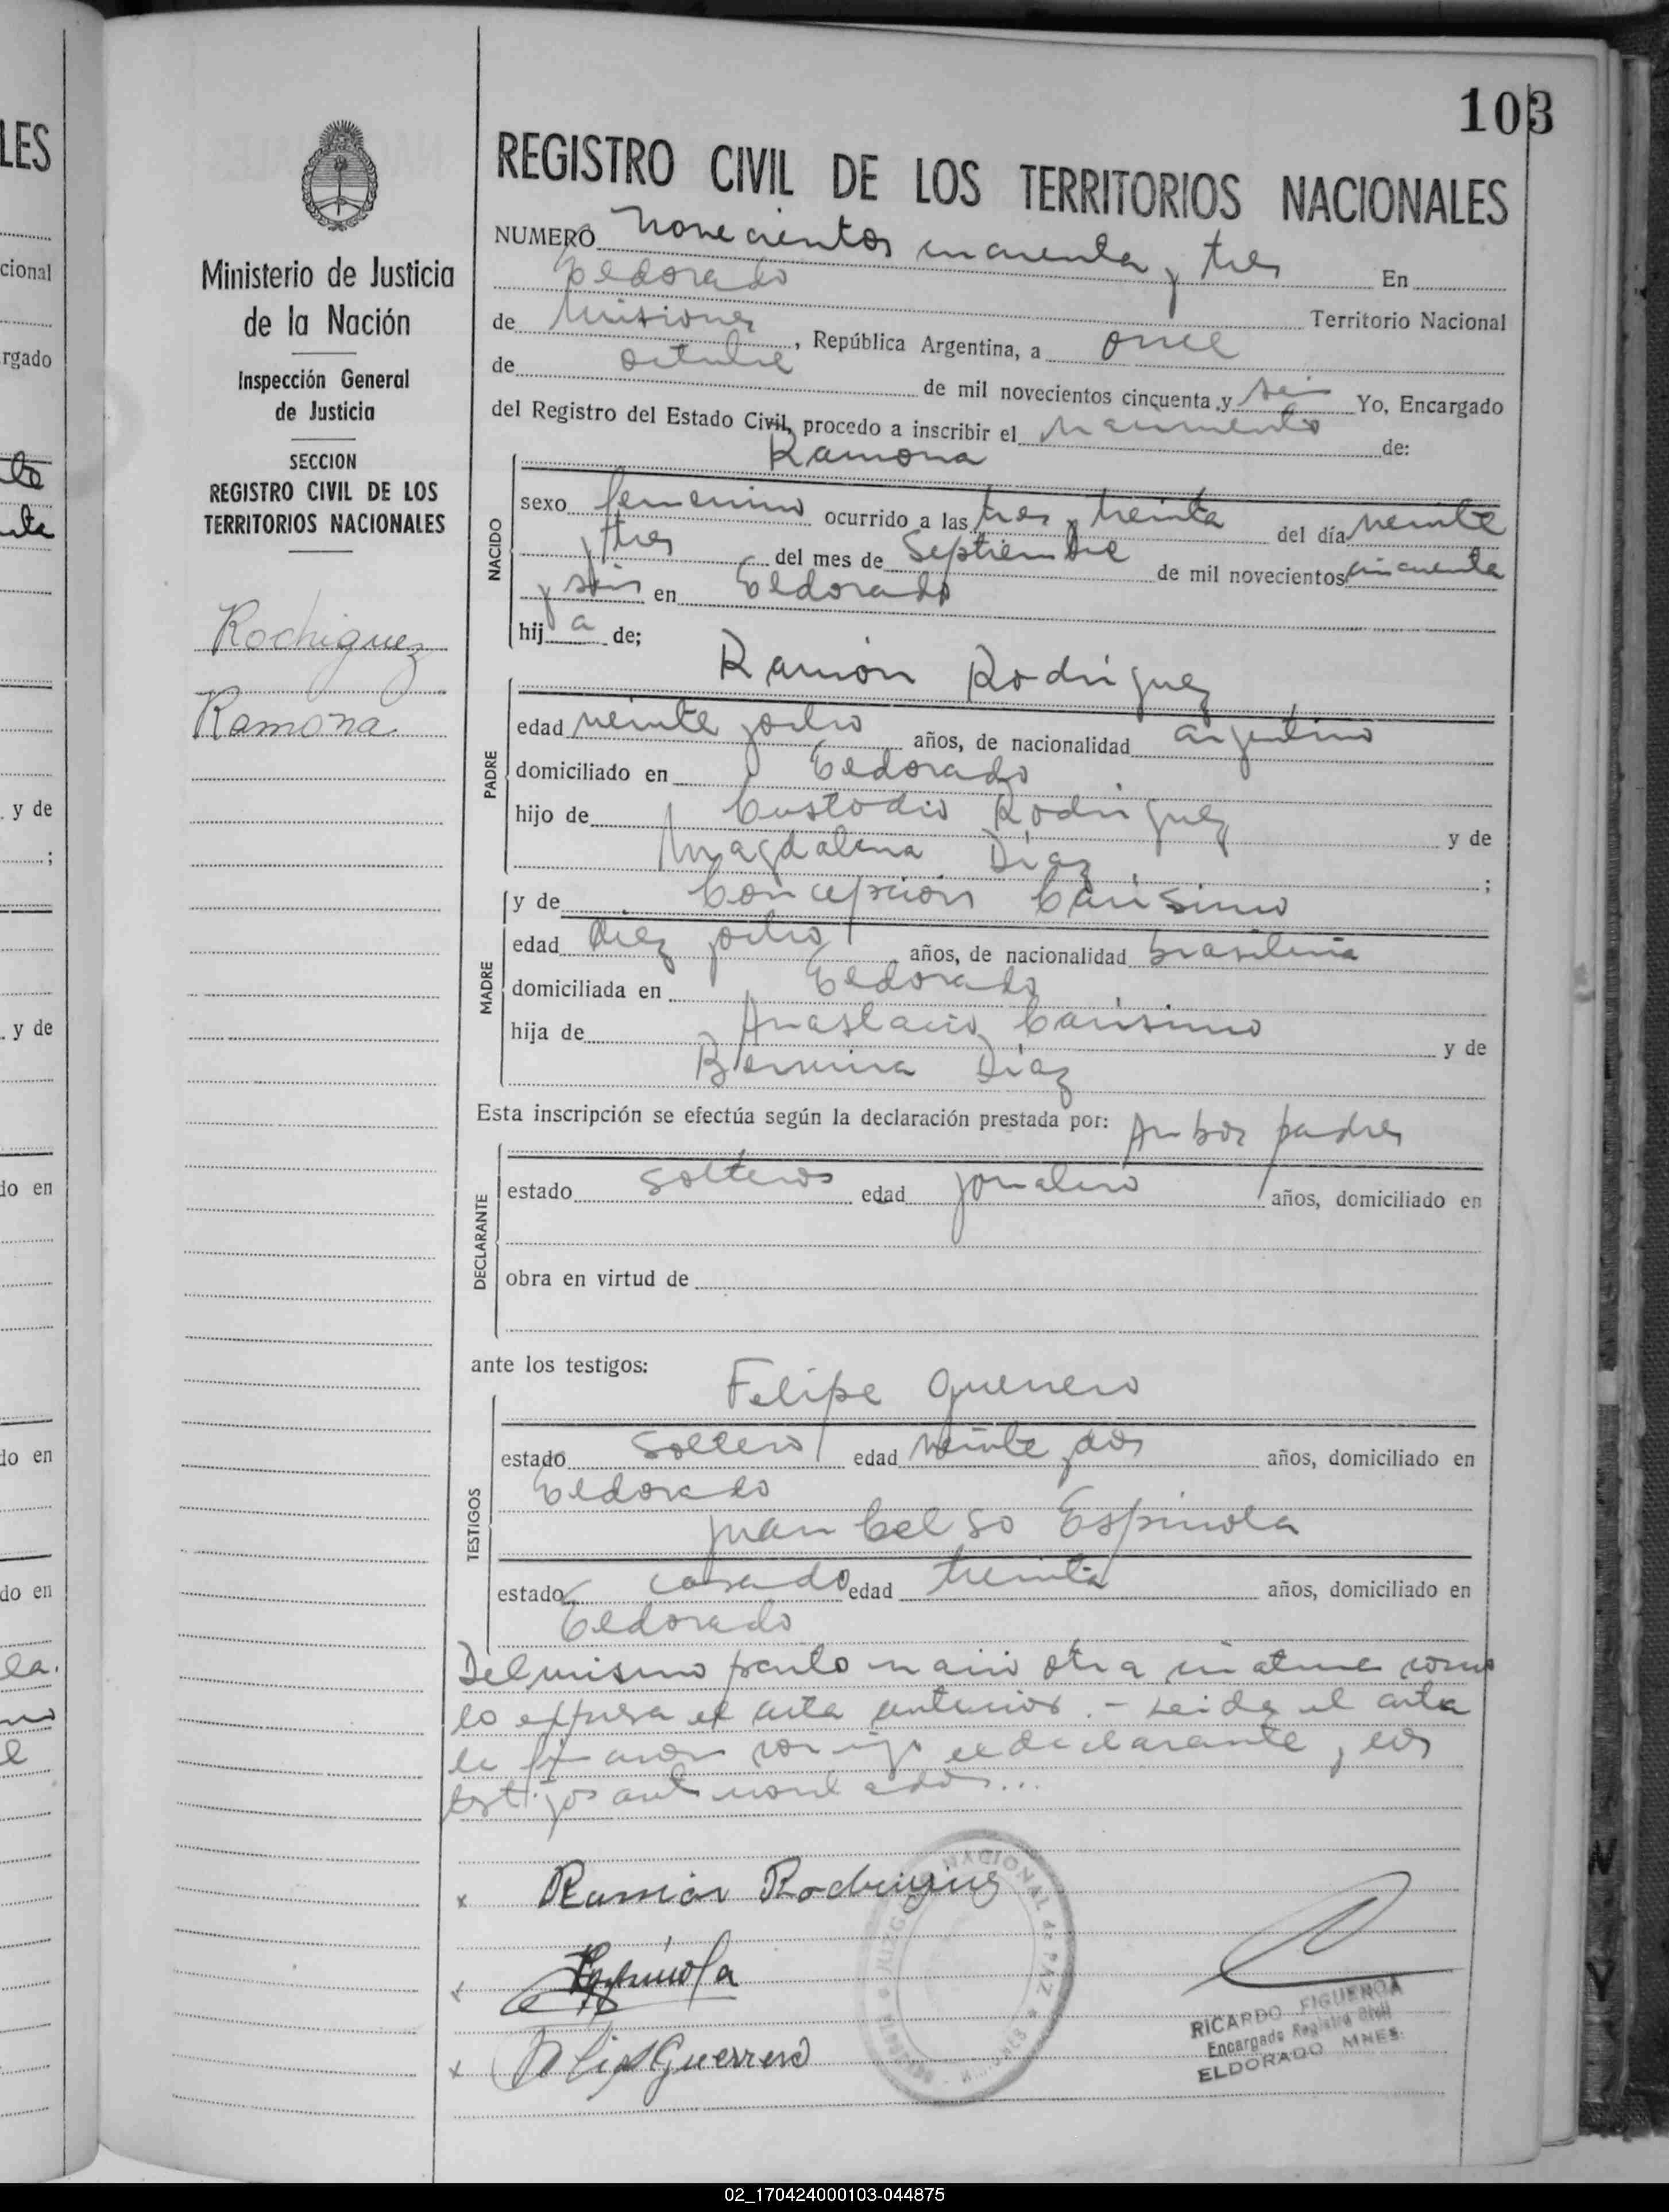 103
LES
cional
rgado
y de
;
y de
do en
do en
do en
la.
Ministerio de Justicia
de la Nación
Inspección General
de Justicia
SECCION
REGISTRO CIVIL DE LOS
TERRITORIOS NACIONALES
Rodriguez
Ramona
REGISTRO CIVIL DE LOS TERRITORIOS NACIONALES
NUMERO novecientos cincuenta y tres En
Eldorado Territorio Nacional
de Misiones, República Argentina, a once
de octubre de mil novecientos cincuenta y seis Yo, Encargado
del Registro del Estado Civil, procedo a inscribir el nacimiento de:
Ramona
NACIDO
sexo femenino ocurrido a las tres y treinta del día veinte
y tres del mes de Septiembre de mil novecientos cincuenta
y seis en Eldorado
hij a de;
Ramón Rodriguez
PADRE
edad veinte y ocho años, de nacionalidad argentino
domiciliado en Eldorado
hijo de Custodio Rodriguez y de
Magdalena Díaz ;
y de Concepción Carísimo
MADRE
edad diez y ocho años, de nacionalidad brasileña
domiciliada en Eldorado
hija de Anastacio Carísimo y de
Díaz
Esta inscripción se efectúa según la declaración prestada por: Ambos padres
DECLARANTE
estado solteros edad jornalero años, domiciliado en
obra en virtud de
ante los testigos:
Felipe Guerrero
TESTIGOS
estado soltero edad veinte y dos años, domiciliado en
Eldorado
Juan Celso Espinola
estado casado edad treinta años, domiciliado en
Eldorado
Del mismo parto nació otra criatura como
lo expresa el acta anterior. - Leida el acta
la firmaron conmigo el declarante y los
testigos antes nombrados...
x Ramón Rodriguez
x Espinola
x Felipe Guerrero
JUZGADO NACIONAL de PAZ
RICARDO FIGUEROA
Encargado Registro Civil
ELDORADO MNES.
02_170424000103-044875